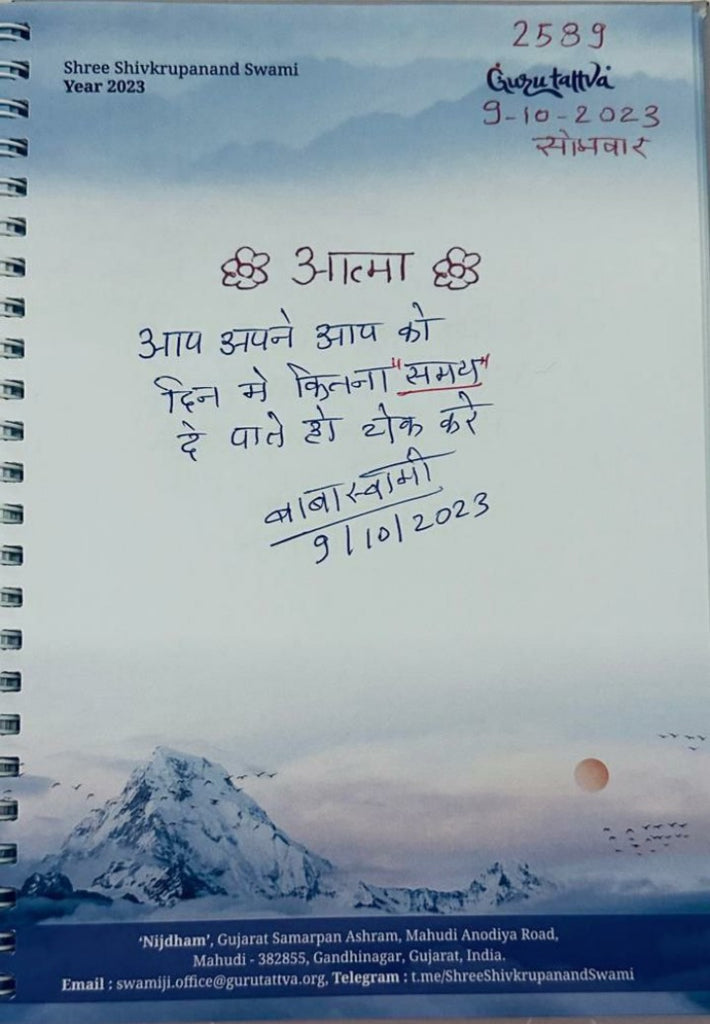 2589
Shree Shivkrupanand Swami
Year 2023
Gurutattva
9-10-2023
सोमवार
आत्मा
आप अपने आप को
दिन मे कितना "समय"
दे पाते हो चेक करे
बाबास्वामी
9/10/2023
'Nijdham', Gujarat Samarpan Ashram, Mahudi Anodiya Road,
Mahudi - 382855, Gandhinagar, Gujarat, India.
Email : swamiji.office@gurutattva.org, Telegram : t.me/ShreeShivkrupanandSwami